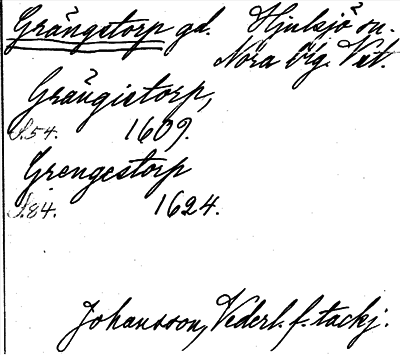 Grängstorp gd. Hjulsjö sn.
Nora bg. Vstm.
Grängietorp,
S.54. 1609.
Grengestorp
S.84. 1624.
Johansson, Vederl. f. tackj.